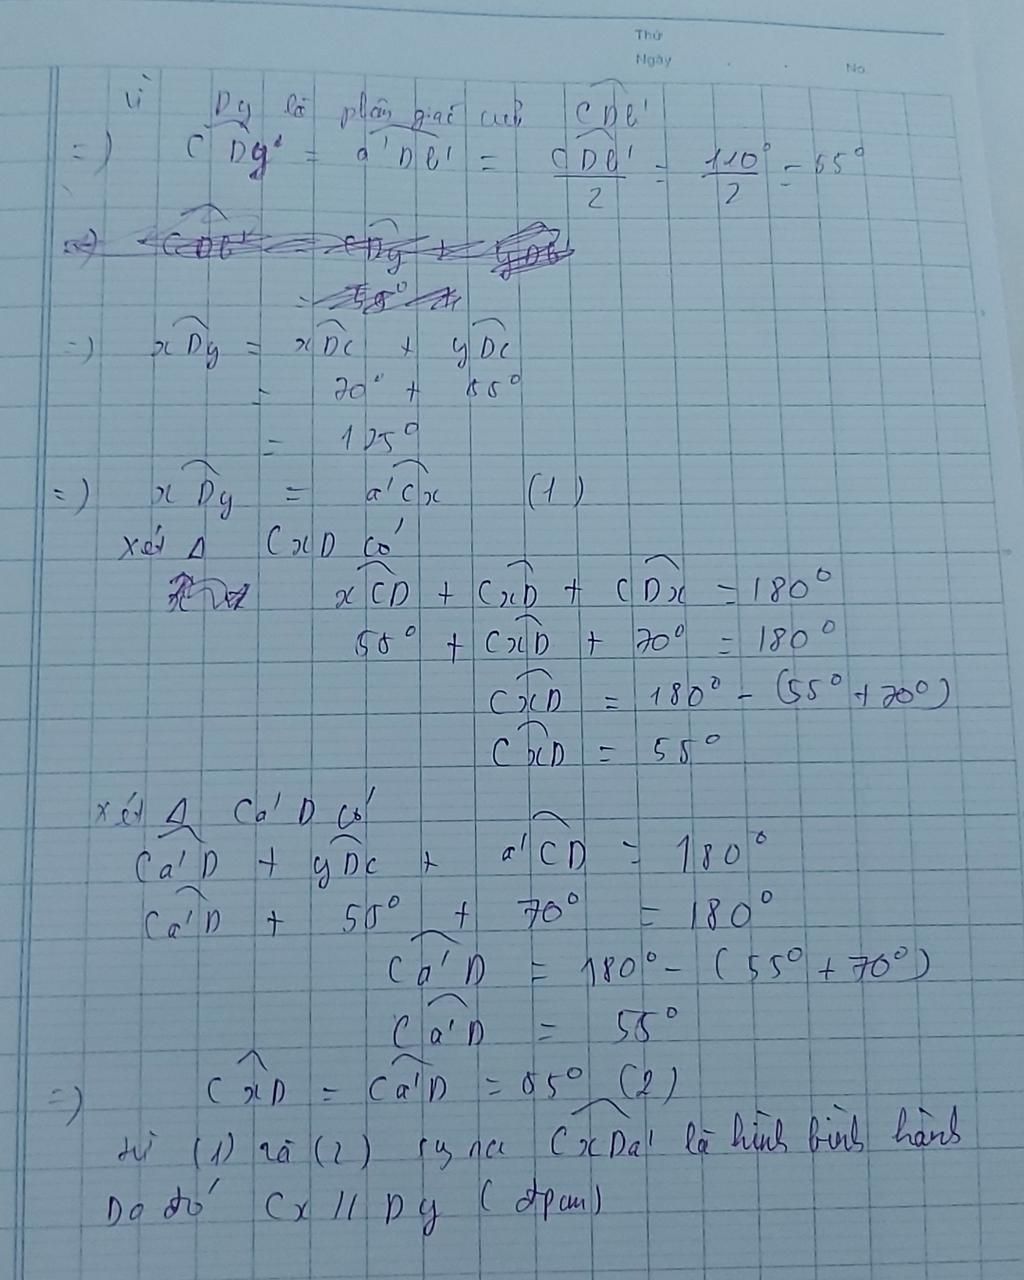 Thứ
Ngày
No.
Vì Dy là phân giác của CDb'
=) CDy = a'Db' = CDb'/2 = 110°/2 = 55°
=) xDy = xDc + yDc
= 70° + 55°
= 125°
=) xDy = a'Cx (1)
Xét Δ CxD có
xCD + CxD + CDx = 180°
55° + CxD + 70° = 180°
CxD = 180° - (55° + 70°)
CxD = 55°
Xét Δ Ca'D có
Ca'D + yDc + a'CD = 180°
Ca'D + 55° + 70° = 180°
Ca'D = 180° - (55° + 70°)
Ca'D = 55°
=) CxD = Ca'D = 55° (2)
từ (1) và (2) suy ra CxDa' là hình bình hành
Do đó Cx // Dy (đpcm)